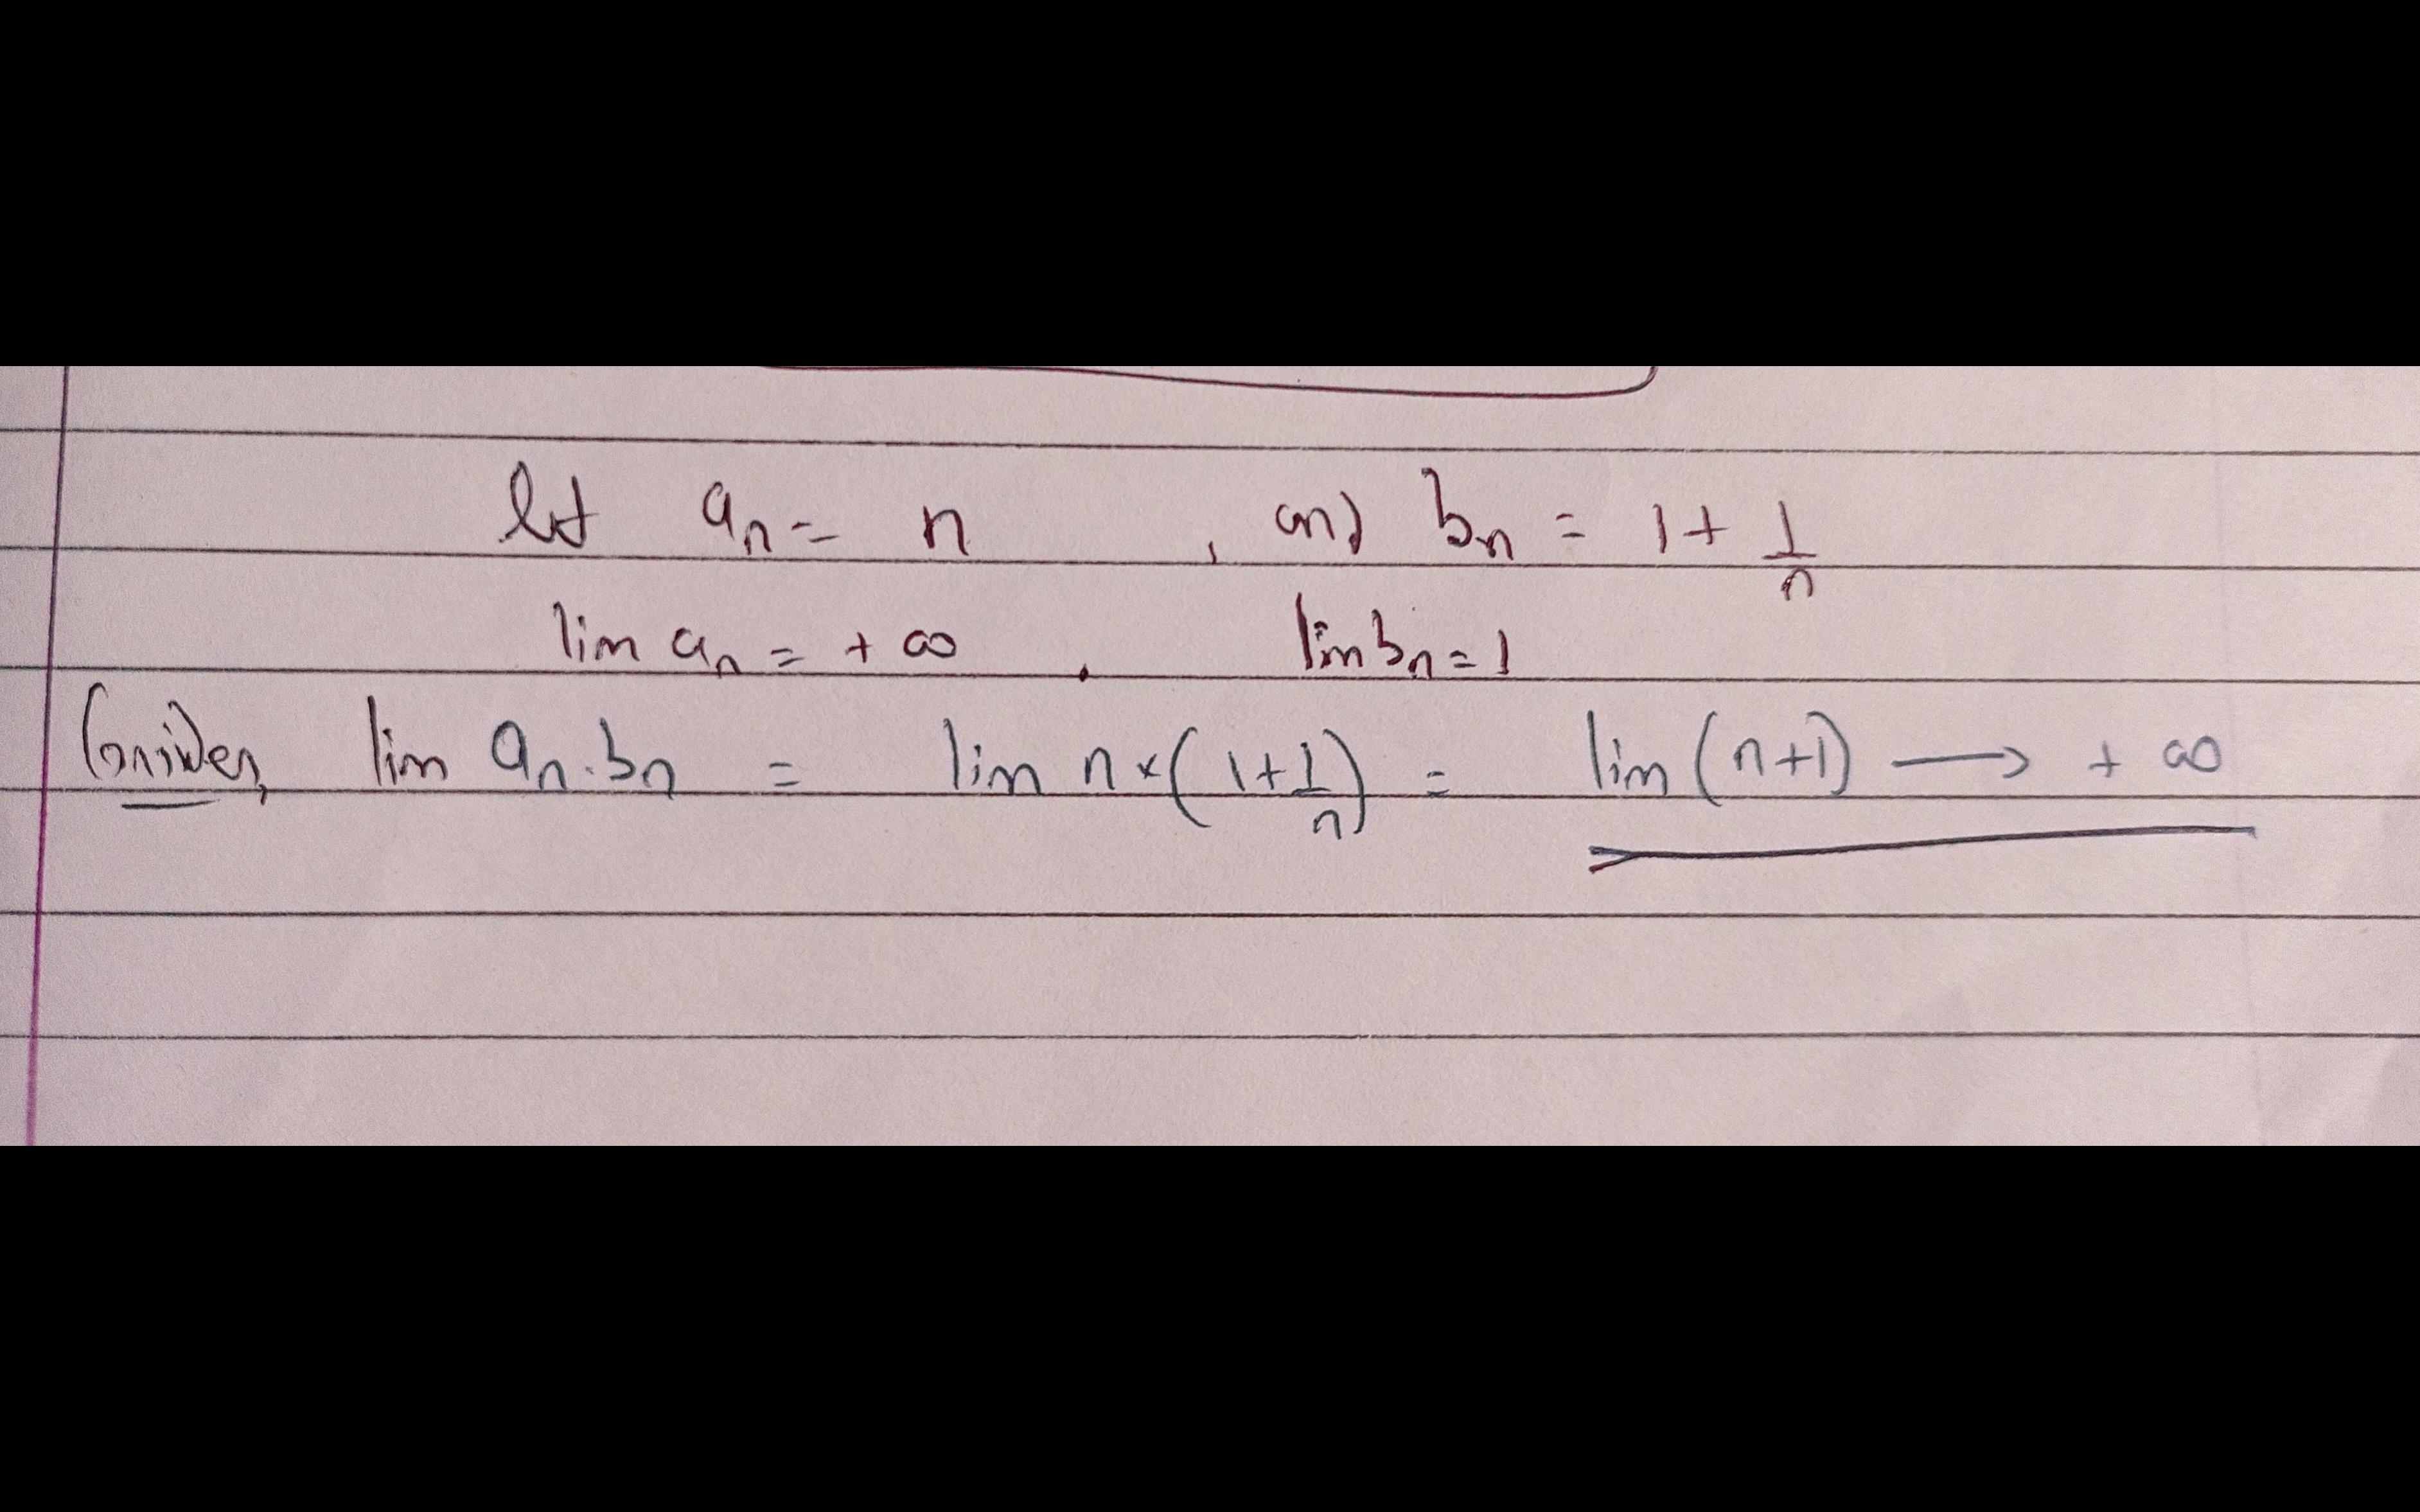 let aₙ = n , and bₙ = 1 + 1/n
lim aₙ = + ∞ . lim bₙ = 1
Consider, lim aₙ.bₙ = lim n × (1 + 1/n) = lim (n+1) ⟶ + ∞